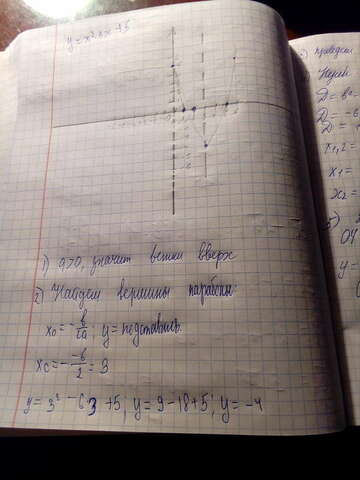 y=x²-6x+5
1) a>0, значит ветки вверх
2) Найдем вершины параболы:
x₀=-b/2a; y= подставить.
x₀=-(-6)/2=3
y=3²-6·3+5; y=9-18+5; y=-4
Д=
x₁,₂=
x₁=
x₂=